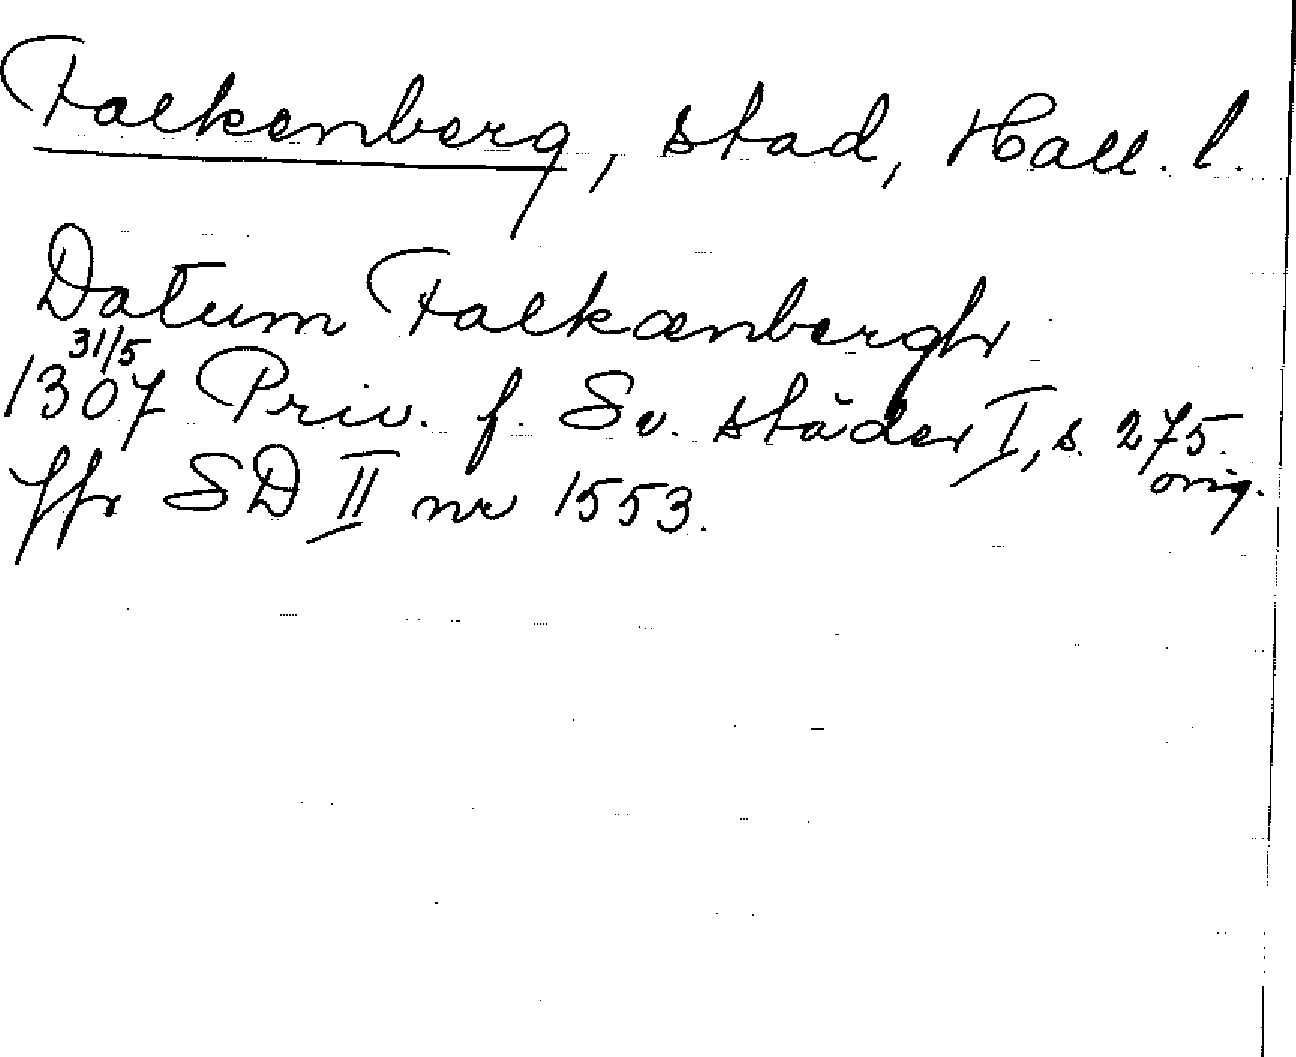 Falkenberg, stad, Hall. l.
Datum Falkænbergh
31/5
1307 Priv. f. Sv. städer I, s. 275.
orig.
Jfr SD II nr 1553.